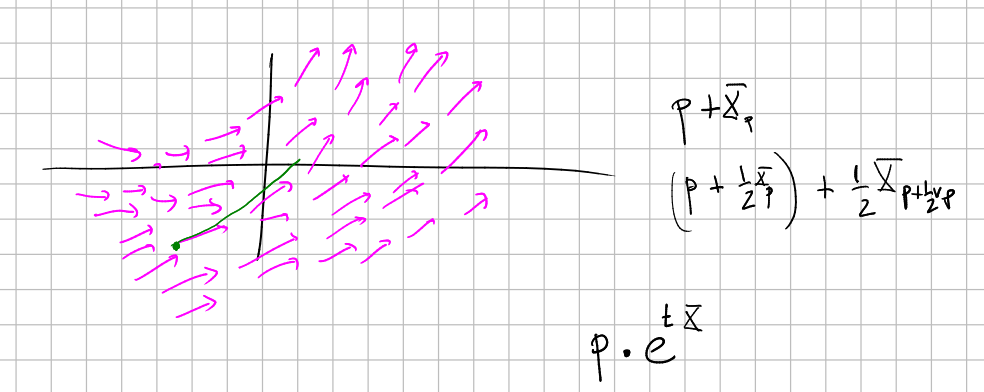 p + X̅ₚ
(p + ½X̅ₚ) + ½ X̅_{p+½Xₚ}
p · e^{tX̅}